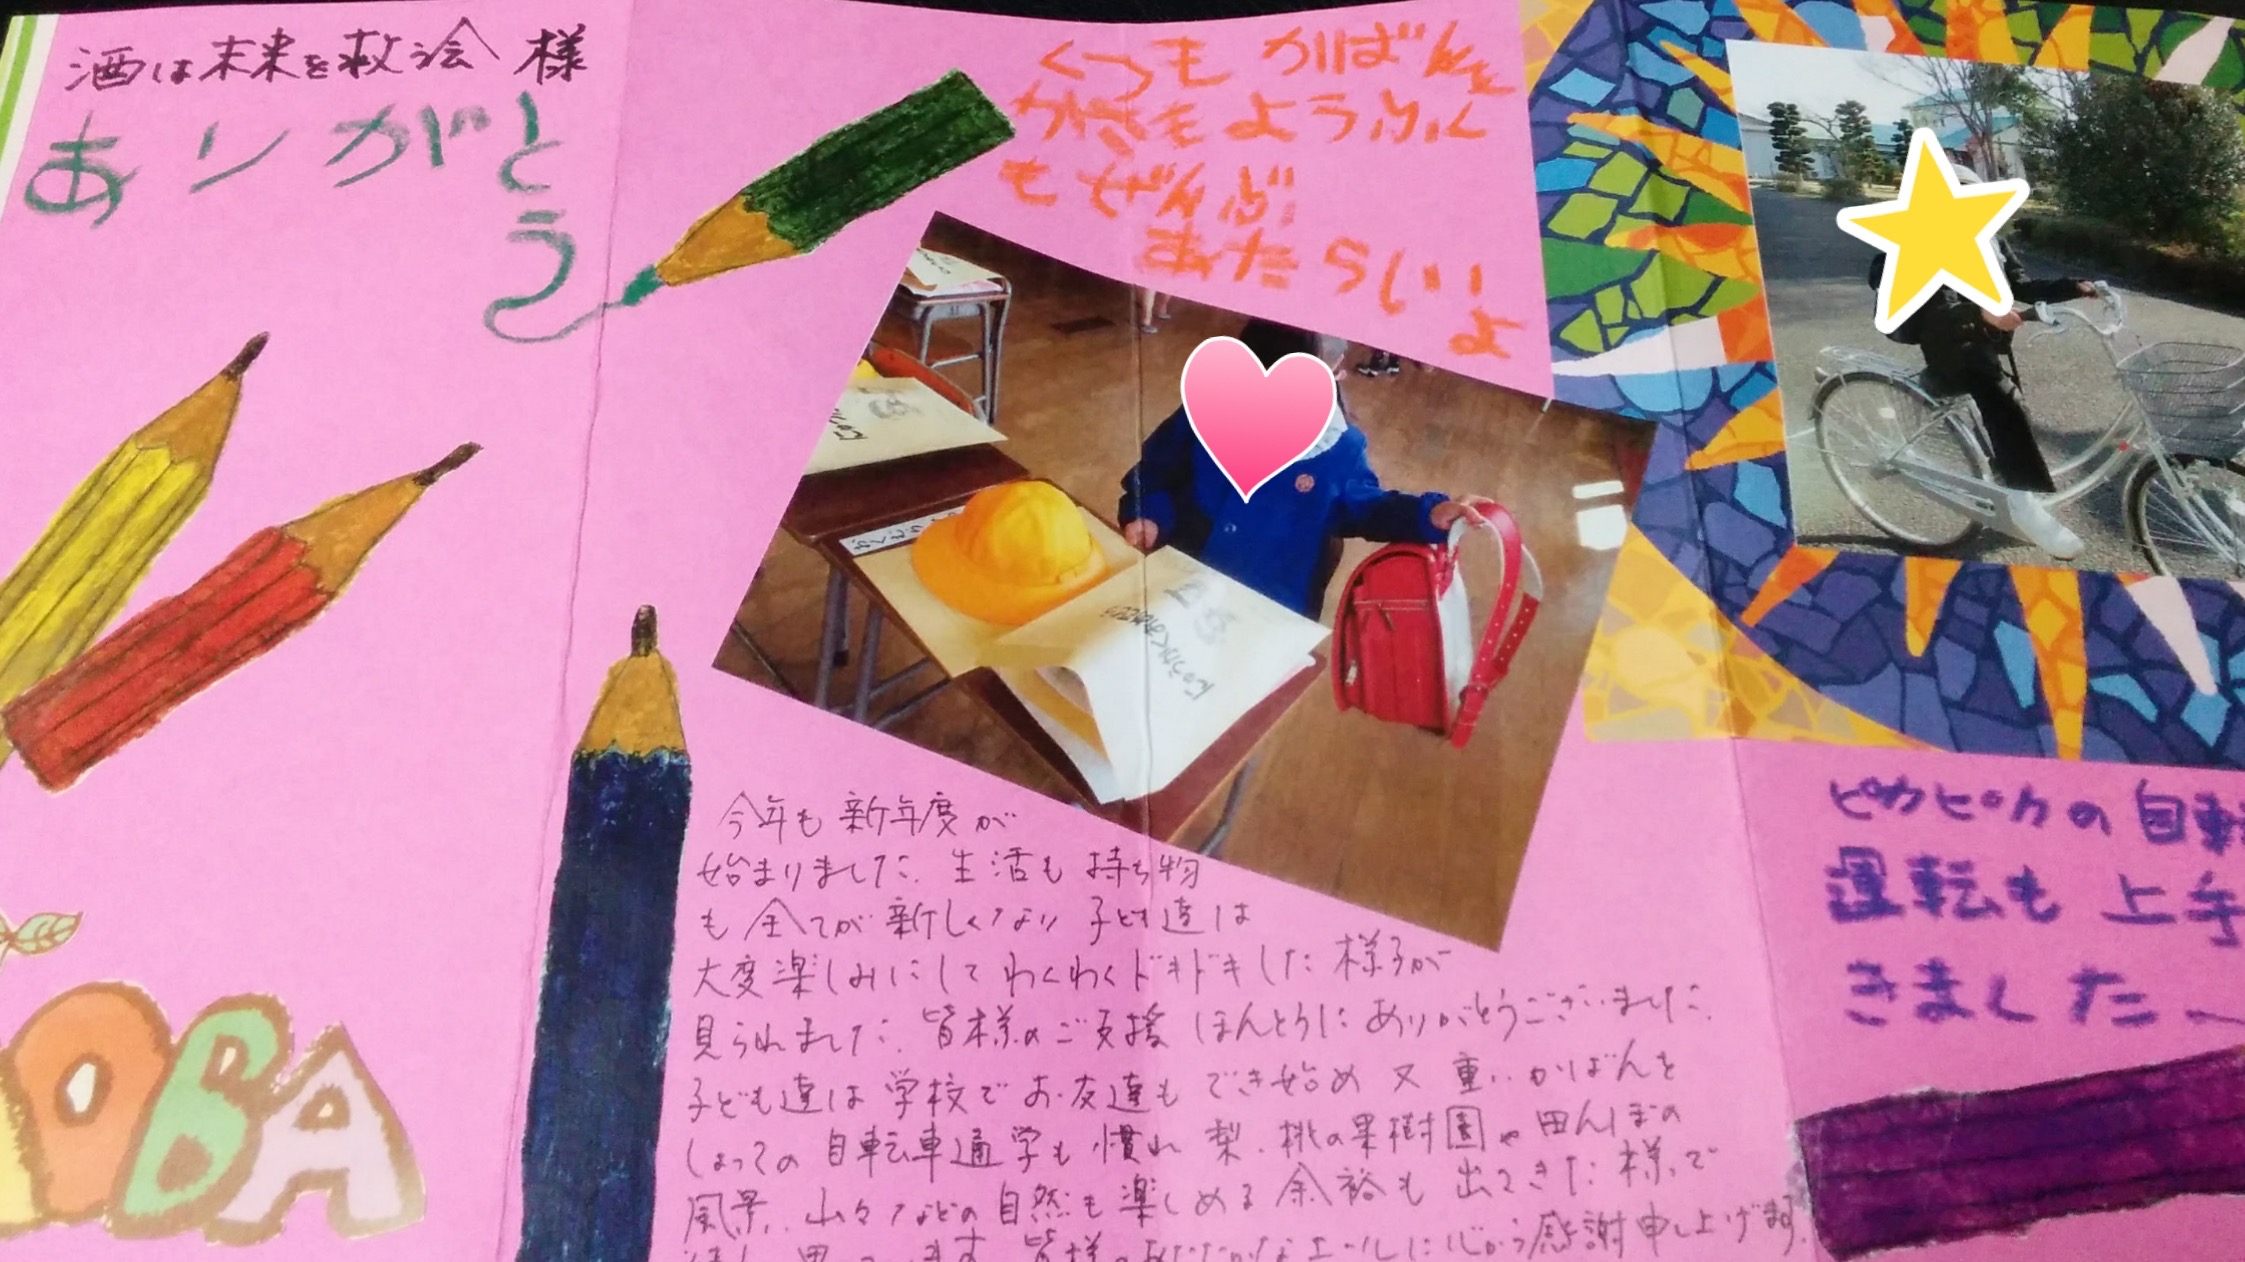 酒は未来を救う会 様
ありがと
う
くつも かばんも
かさも ようふく
も ぜんぶ
あたらしい
よ
今年も 新年度が
始まりました。生活も 持ち物
も 全てが 新しくなり 子ども達は
大変楽しみにして わくわくドキドキした 様子が
見られました。皆様のご支援 ほんとうに ありがとうございました。
子ども達は 学校で お友達も でき始め 又 重いかばんを
しょっての 自転車通学も 慣れ 梨、桃の果樹園や 田んぼの
風景、山々などの 自然も 楽しめる 余裕も 出てきた 様で
感謝申し上げます。
ピカピカの 自転
運転も 上手
きました。
OBA
にゅうがく